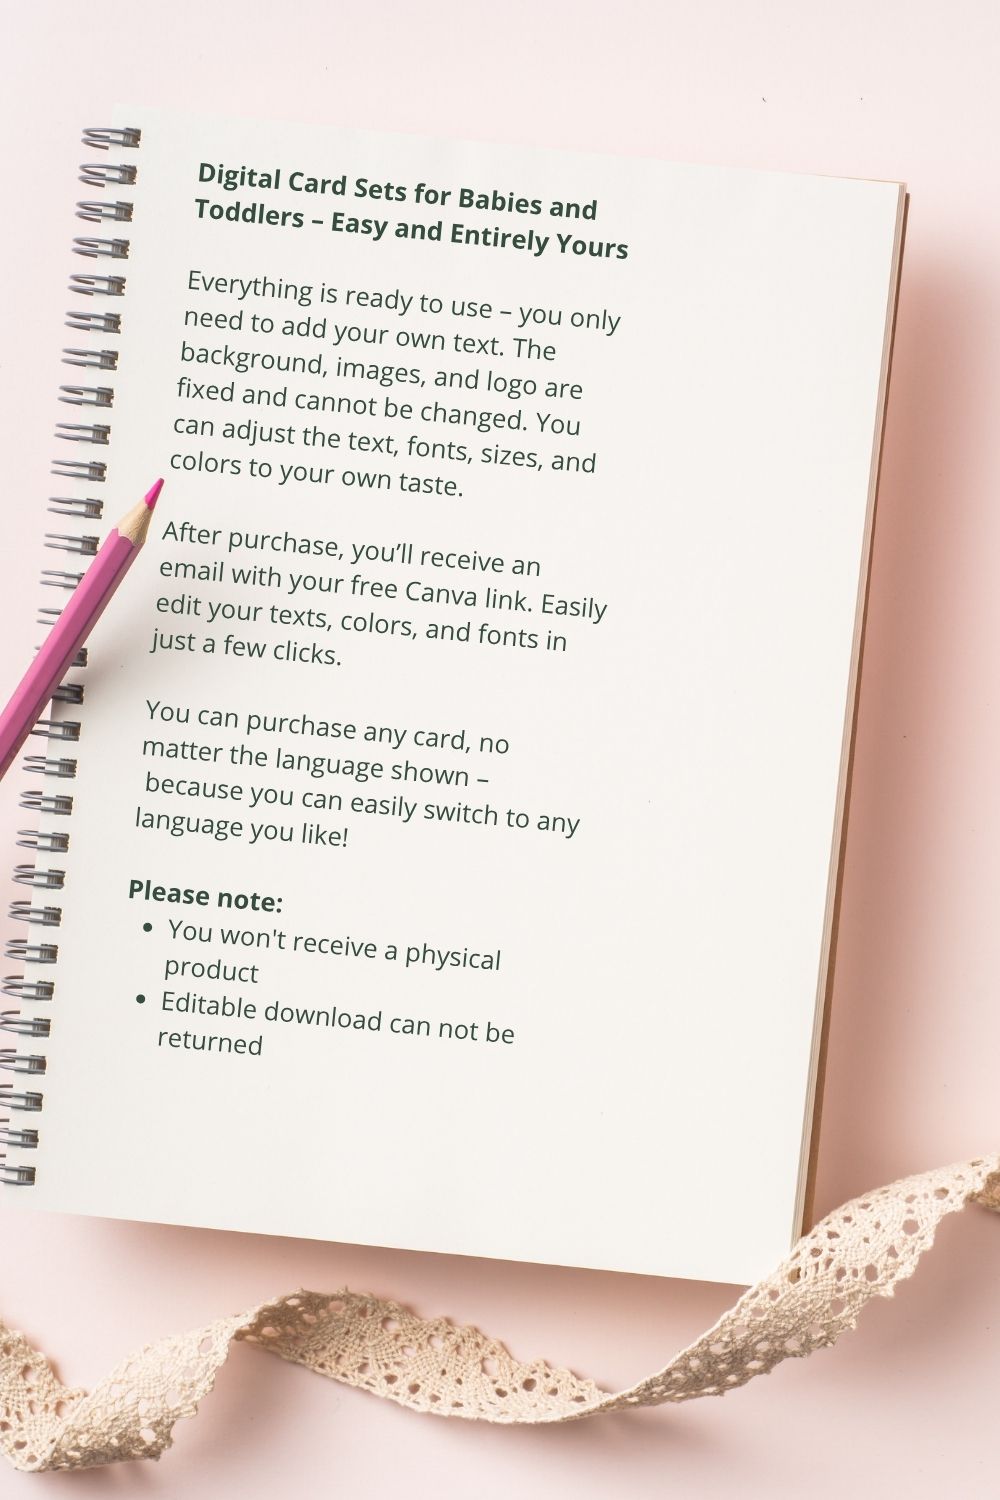 Digital Card Sets for Babies and
Toddlers – Easy and Entirely Yours
Everything is ready to use – you only
need to add your own text. The
background, images, and logo are
fixed and cannot be changed. You
can adjust the text, fonts, sizes, and
colors to your own taste.
After purchase, you’ll receive an
email with your free Canva link. Easily
edit your texts, colors, and fonts in
just a few clicks.
You can purchase any card, no
matter the language shown –
because you can easily switch to any
language you like!
Please note:
• You won't receive a physical
product
• Editable download can not be
returned